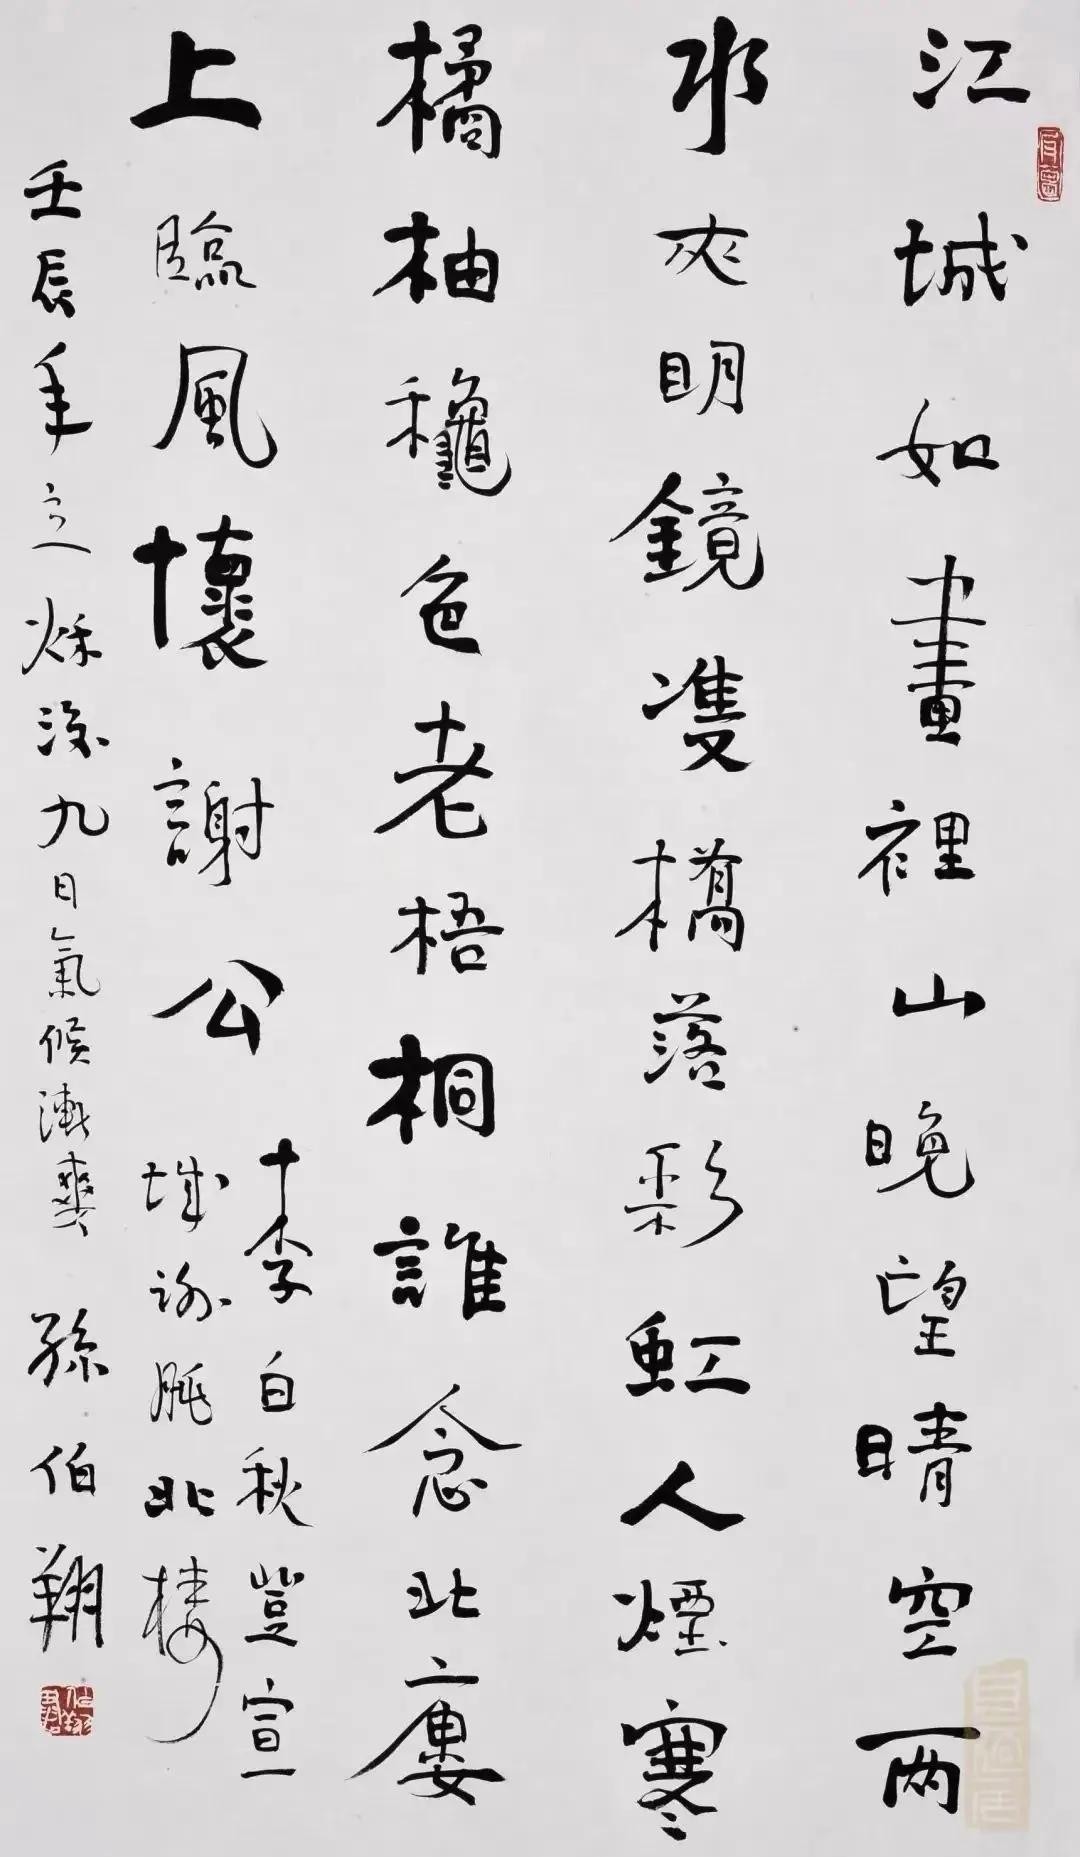 江城如畫裡山晚望晴空兩
水夾明鏡雙橋落彩虹人煙寒
橘柚龝色老梧桐誰念北廔
上臨風懷謝公
李白秋登宣
城謝朓北樓
壬辰年立秌後九日氣候漸爽 孫伯翔